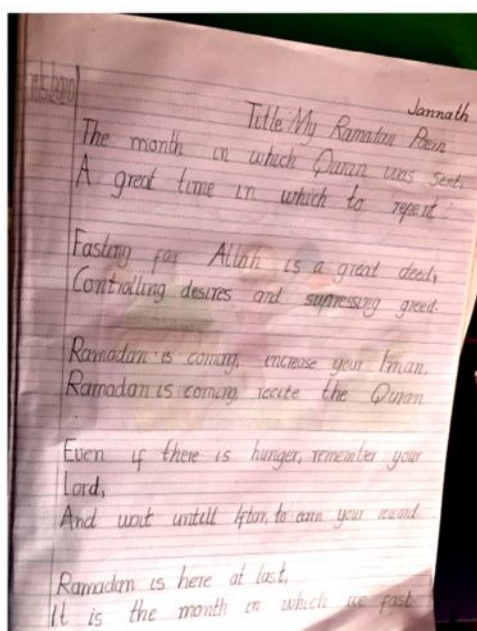 Jannath
Title: My Ramadan Poem
The month in which Quran was sent,
A great time in which to repent.
Fasting for Allah is a great deed,
Controlling desires and supressing greed.
Ramadan is coming, increase your Iman,
Ramadan is coming recite the Quran
Even if there is hunger, remember your
Lord,
And wait untill Iftar, to earn your reward.
Ramadan is here at last,
It is the month in which we fast